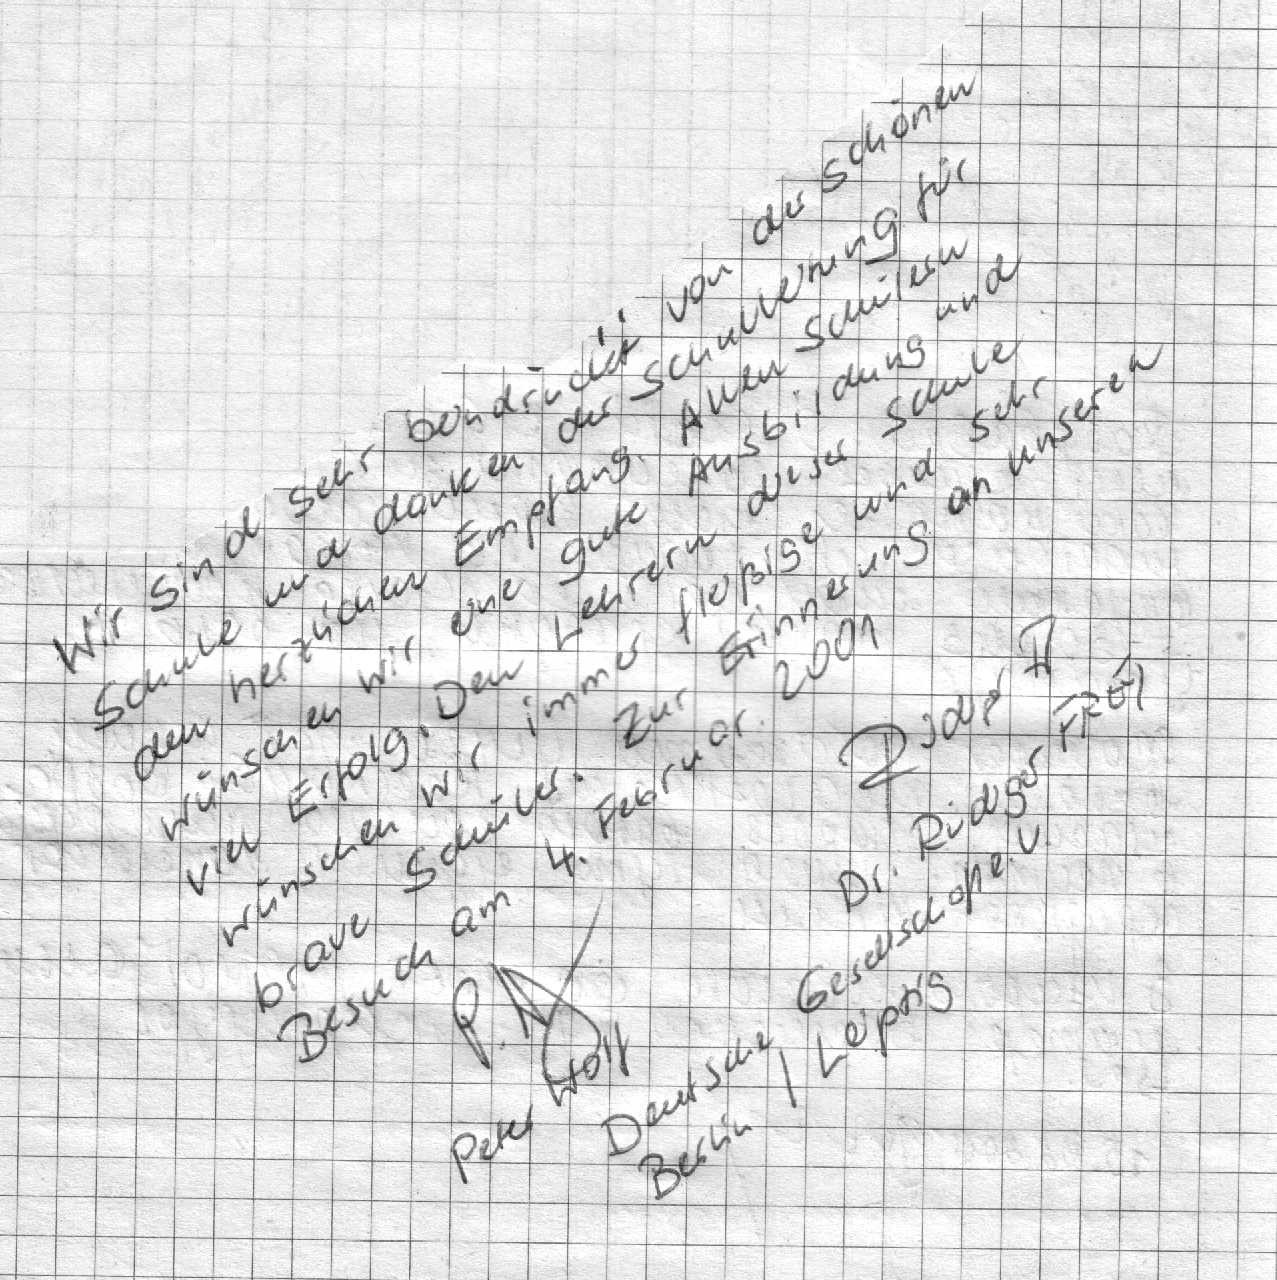 Wir sind sehr beindruckt von der schönen
Schule und danken der Schulleitung für
den herzlichen Empfang. Allen Schülern
wünschen wir eine gute Ausbildung und
viel Erfolg. Den Lehrern dieser Schule
wünschen wir immer fleißige und sehr
brave Schüler. Zur Erinnerung an unseren
Besuch am 4. Februar. 2001
Dr. Rüdiger
P.
Peter Wolf
Deutsche Gesellschaft e.V.
Berlin / Leipzig